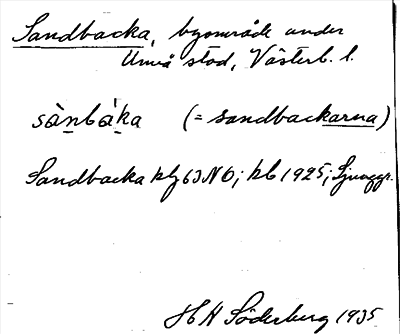 Sandbacka, byområde under
Umeå stad, Västerb. l.
sànbáka (= sandbackarna)
Sandbacka klg 63 NO; kb 1925; Ljunggr.
H A Söderberg 1935